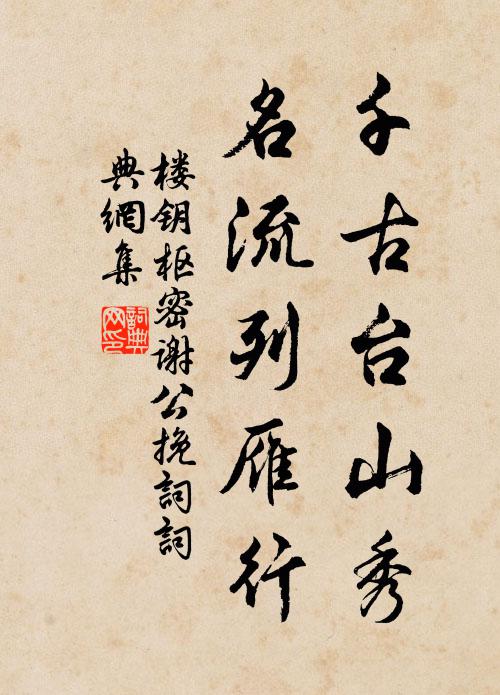 千古台山秀
名流列雁行
楼钥枢密谢公挽詞詞
典網集
詞典
网印